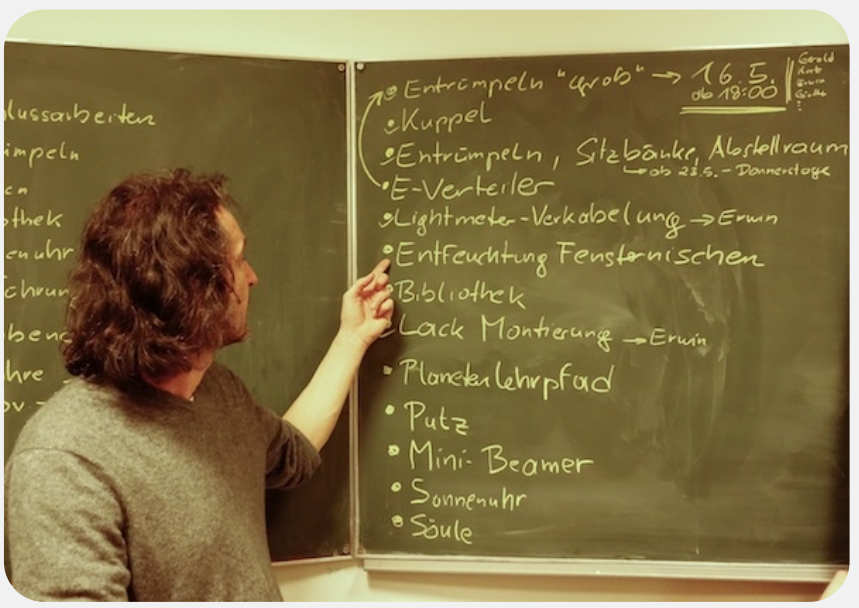 lussarbeiten
impeln
en
othek
enuhr
chrun
bend
hre
ov -
Entrümpeln "groß" → 16.5.
ab 18:00
Gerold
Erwin
Kuppel
Entrümpeln, Sitzbänke, Abstellraum
ab 23.5. - Donnerstage
E-Verteiler
Lightmeter-Verkabelung → Erwin
Entfeuchtung Fensternischen
Bibliothek
Lack Montierung → Erwin
Planetenlehrpfad
Putz
Mini-Beamer
Sonnenuhr
Säule